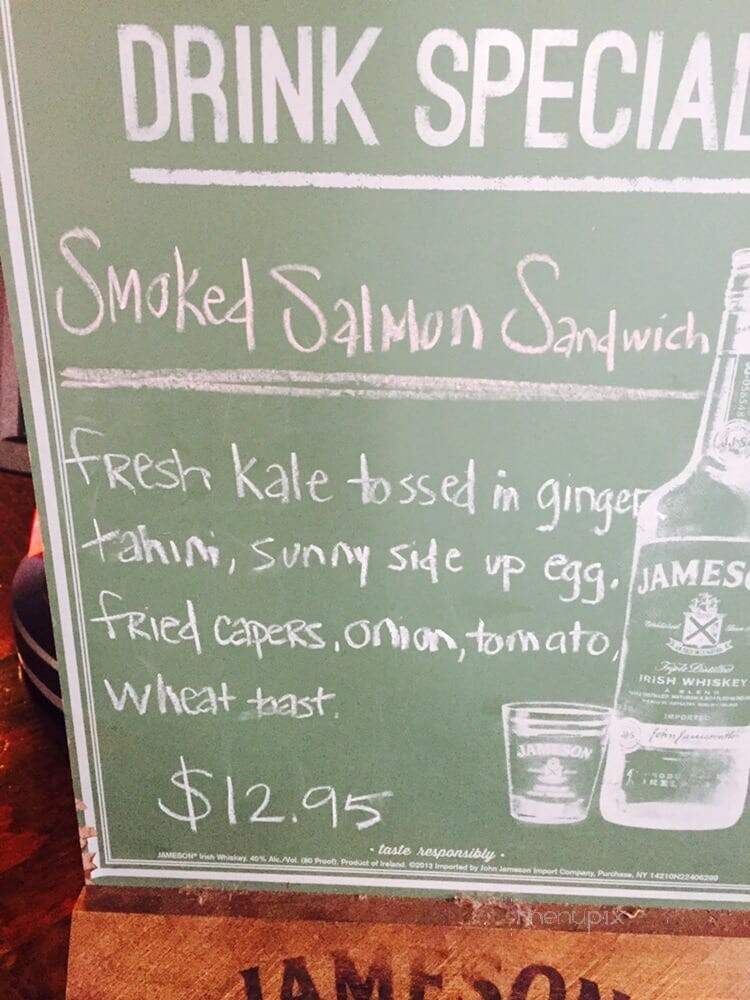 DRINK SPECIAL
Smoked Salmon Sandwich
fresh kale tossed in ginger
tahini, sunny side up egg.
fried capers, onion, tomato,
wheat toast.
$12.95
JAMES
Triple Distilled
IRISH WHISKEY
A BLEND
IMPORTED
John Jameson
JAMESON
- taste responsibly -
JAMESON® Irish Whiskey. 40% Alc./Vol. (80 Proof). Product of Ireland. ©2013 Imported by John Jameson Import Company, Purchase, NY 14210N22406299
menupix
JAMESON